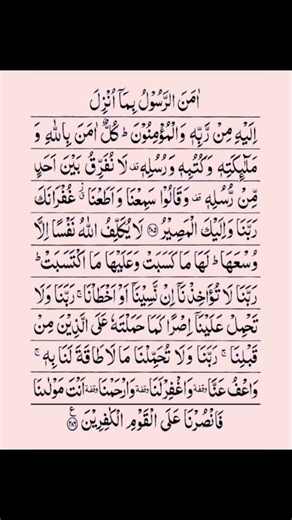 اٰمَنَ الرَّسُوۡلُ بِمَاۤ اُنۡزِلَ
اِلَيۡهِ مِنۡ رَّبِّهٖ وَالۡمُؤۡمِنُوۡنَ ؕ كُلٌّ اٰمَنَ بِاللّٰهِ وَ
مَلٰٓئِكَتِهٖ وَكُتُبِهٖ وَرُسُلِهٖ قف لَا نُفَرِّقُ بَيۡنَ اَحَدٍ
مِّنۡ رُّسُلِهٖ قف وَقَالُوۡا سَمِعۡنَا وَاَطَعۡنَا ۫ غُفۡرَانَكَ
رَبَّنَا وَاِلَيۡكَ الۡمَصِيۡرُ ﴿۲۸۵﴾ لَا يُكَلِّفُ اللّٰهُ نَفۡسًا اِلَّا
وُسۡعَهَا ؕ لَهَا مَا كَسَبَتۡ وَعَلَيۡهَا مَا اكۡتَسَبَتۡ ؕ
رَبَّنَا لَا تُؤَاخِذۡنَاۤ اِنۡ نَّسِيۡنَاۤ اَوۡ اَخۡطَاۡنَا ۚ رَبَّنَا وَلَا
تَحۡمِلۡ عَلَيۡنَاۤ اِصۡرًا كَمَا حَمَلۡتَهٗ عَلَى الَّذِيۡنَ مِنۡ
قَبۡلِنَا ۚ رَبَّنَا وَلَا تُحَمِّلۡنَا مَا لَا طَاقَةَ لَنَا بِهٖ ۚ
وَاعۡفُ عَنَّا وقفة وَاغۡفِرۡ لَنَا وقفة وَارۡحَمۡنَا وقفة اَنۡتَ مَوۡلٰٮنَا
فَانۡصُرۡنَا عَلَى الۡقَوۡمِ الۡكٰفِرِيۡنَ ﴿۲۸۶﴾ ع